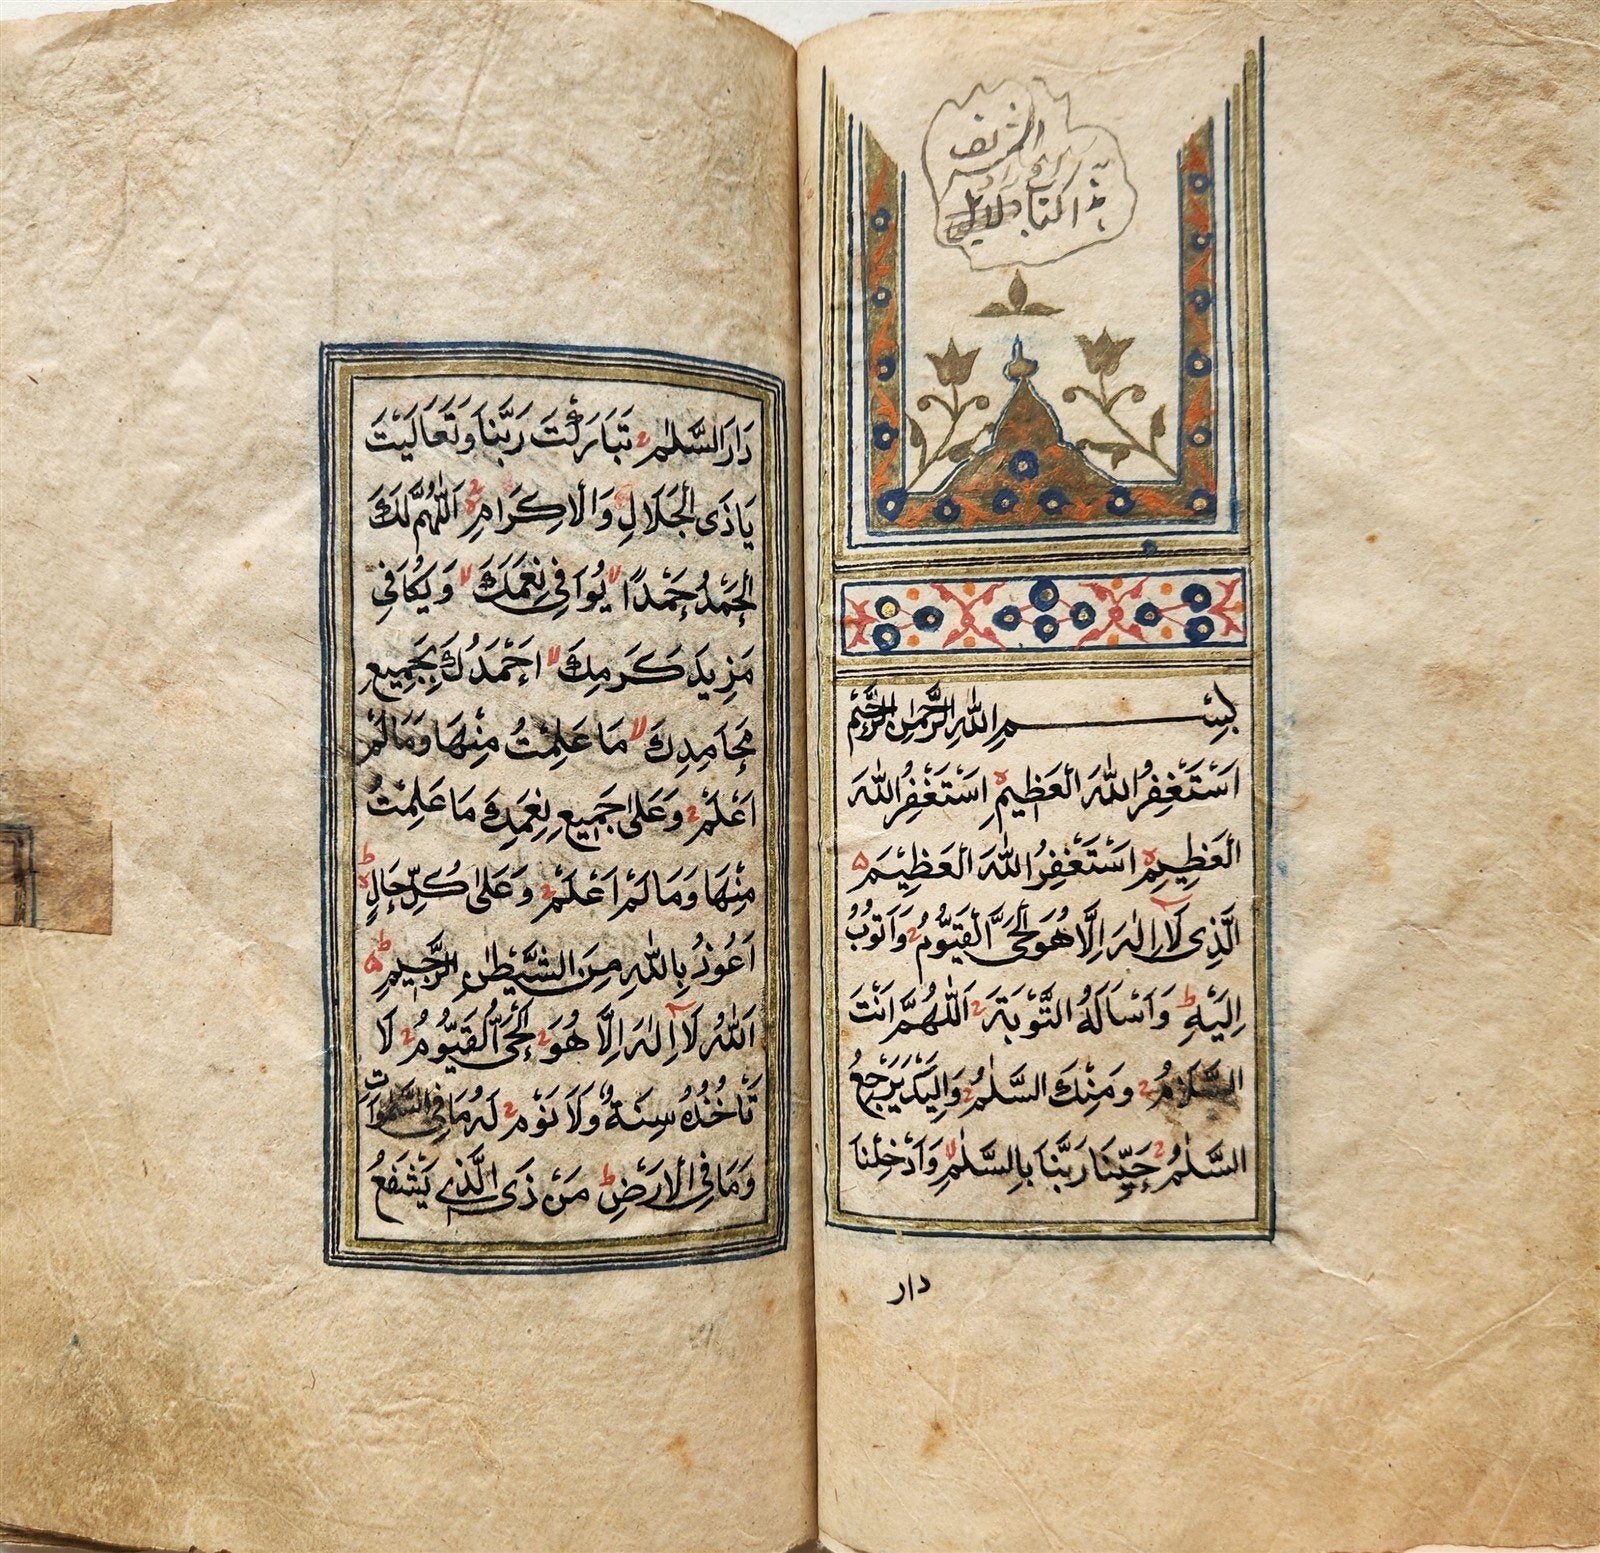 الشريف
هذا كتاب دلايل
بِسْمِ اللهِ الرَّحْمٰنِ الرَّحِيْمِ
اَسْتَغْفِرُ اللهَ الْعَظِيْمِ اَسْتَغْفِرُ اللهَ
الْعَظِيْمِ اَسْتَغْفِرُ اللهَ الْعَظِيْمَ
الَّذِى لَا اِلٰهَ اِلَّا هُوَ الْحَىَّ الْقَيُّوْمُ وَاَتُوْبُ
اِلَيْهِ وَاَسْاَلُهُ التَّوْبَةَ اَللّٰهُمَّ اَنْتَ
السَّلَامُ وَمِنْكَ السَّلٰمُ وَاِلَيْكَ يَرْجِعُ
السَّلٰمُ حَيِّنَا رَبَّنَا بِالسَّلٰمِ وَاَدْخِلْنَا
دار
دَارَ السَّلٰمِ تَبَارَكْتَ رَبَّنَا وَتَعَالَيْتَ
يَاذَى الْجَلَالِ وَالْاِكْرَامِ اَللّٰهُمَّ لَكَ
الْحَمْدُ حَمْدًا يُوَافِى نِعَمَكَ وَيُكَافِى
مَزِيْدَ كَرَمِكَ اَحْمَدُكَ بِجَمِيْعِ
مَحَامِدِكَ مَا عَلِمْتُ مِنْهَا وَمَا لَمْ
اَعْلَمْ وَعَلٰى جَمِيْعِ نِعَمِكَ مَا عَلِمْتُ
مِنْهَا وَمَا لَمْ اَعْلَمْ وَعَلٰى كُلِّ حَالٍ
اَعُوْذُ بِاللهِ مِنَ الشَّيْطٰنِ الرَّجِيْمِ
اَللهُ لَا اِلٰهَ اِلَّا هُوَ اَلْحَىُّ الْقَيُّوْمُ لَا
تَاْخُذُهُ سِنَةٌ وَلَا نَوْمٌ لَهُ مَا فِى السَّمٰوَاتِ
وَمَا فِى الْاَرْضِ مَنْ ذَى الَّذِى يَشْفَعُ